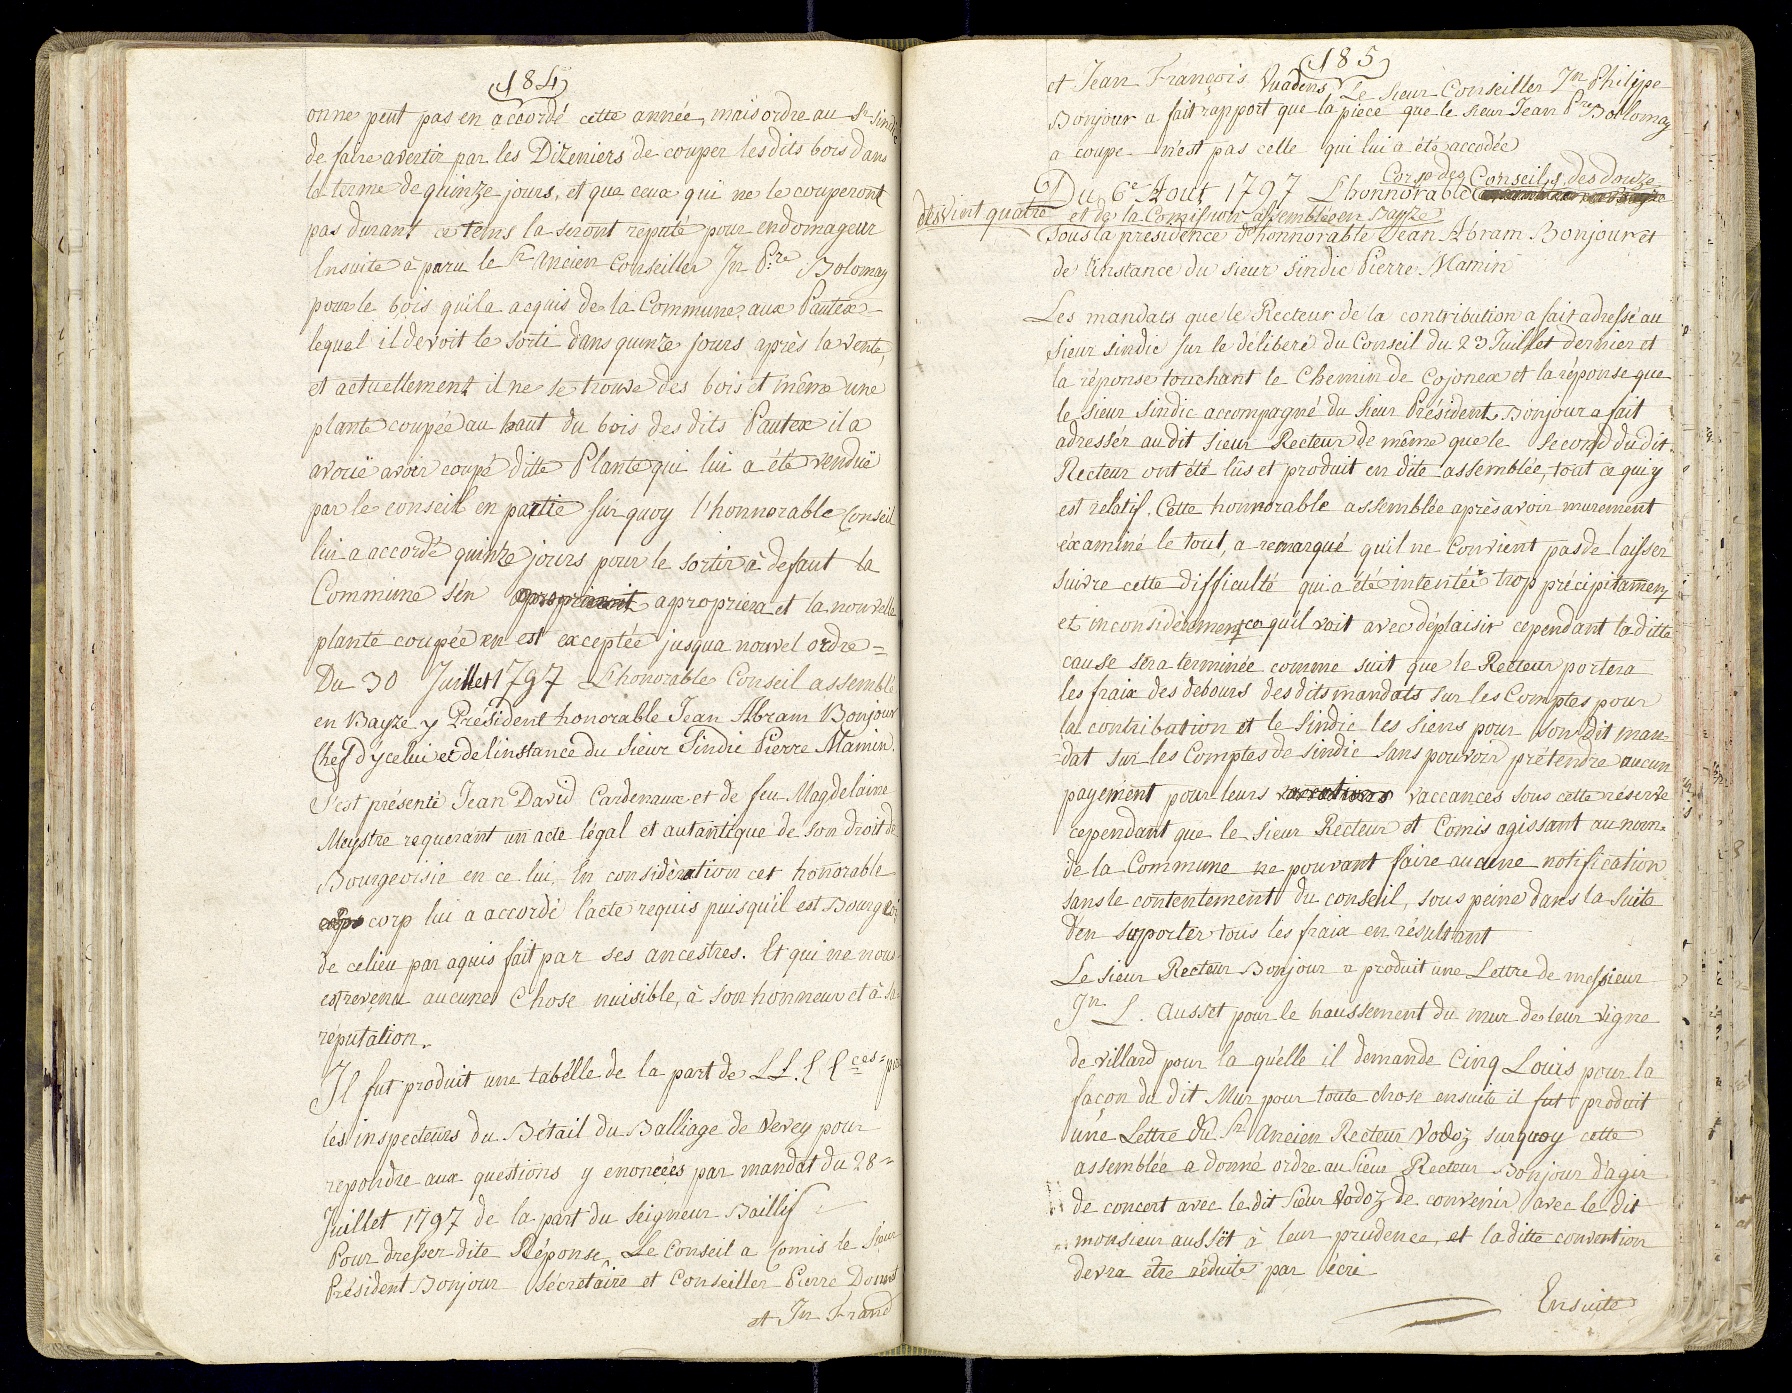 184
onne peut pas en accordé cette année, mais ordre au Sr. Sindic
de faire avertir par les Dizeniers de couper lesdits bois dans
le terme de quinze jours, et que ceux qui ne le couperont
pas durant ce tems la seront reputé pour endomageur
Ensuite à paru le Sr Ancien Conseiller Jn Pre. Bolomay
pour le bois quil a acquis de la Commune, aux Pautex
lequel il devoit le sorti dans quinze jours après la vente,
et actuellement il ne se trouve des bois et même une
plante coupée au haut du bois des dits Pautex il a
avouë avoir coupé ditte Plante qui lui a été venduë
par le conseil en partie sur quoy l'honnorable Conseil
lui a accordé quinze jours pour le sortir à defaut la
Commune s'en apropriera et la nouvelle
plante coupée en est exceptée jusqua nouvel ordre =
Du 30 Juillet 1797 L'honorable Conseil assemblé
en Bayze y Président honorable Jean Abram Bonjour
Chef d'ycelui et de l'instance du Sieur Sindic Pierre Mamin.
S'est présenté Jean David Cardenaux et de feu Magdelaine
Meystre requerant un acte légal et autantique de son droit de
Bourgeoisie en ce lui, En considération cet honorable
corp lui a accordé l'acte requis puisqu'il est Bourgeois
de celieu par aquis fait par ses ancestres. Et qui ne nous
est revenu aucune Chose nuisible, à son honneur et à sa
réputation.
Il fut produit une tabélle de la part de LL. E E ces = pour
les inspecteurs du Bétail du Balliage de Vevey pour
repondre aux questions y enoncées par mandat du 28 =
Juillet 1797 de la part du Seigneur Baillif
Pour dresser dite Réponse, Le Conseil a Comis le Sieur
Président Bonjour Sécretaire et Conseiller Pierre Donnet
et Jn Franç
185
et Jean François Vuadens, Le Sieur Conseiller Jn Philipe
Bonjour a fait rapport que la piece que le sieur Jean Pre Bollomay
a coupe n'est pas celle qui lui a été accodée
Corp des Conseils des douze
Du 6e Aout 1797 L'honnorable
des Vint quatre et de la Comission assemblée en Bayze
sous la présidence d'honnorable Jean Abram Bonjour et
de l'instance du sieur sindic Pierre Mamin
Les mandats que le Recteur de la contribution a fait adressé au
Sieur sindic sur le déliberé du Conseil du 23 Juillet dernier et
la réponse touchant le Chemin de Cojonex et la réponse que
le Sieur Sindic accompagné du Sieur Président Bonjour a fait
adresser audit Sieur Recteur de même que le second du dit
Recteur ont été lûs et produit en dite assemblée, tout ce qui y
est relatif. Cette honnorable assemblée après avoir murement
éxaminé le tout, a remarqué qu'il ne Convient pas de laisser
suivre cette difficulté qui a été intentée trop précipitament
et inconsidèrement ce qu'il voit avec déplaisir cependant laditte
cause séra terminée comme suit que le Recteur portera
les fraix des debours desdits mandats sur les Comptes pour
la contribution et le Sindic les siens pour son dit man=
=dat sur les Comptes de Sindic sans pouvoir prétendre aucun
payement pour leurs vaccances sous cette réserve
cependant que le Sieur Recteur et Comis agissant au nom=
de la Commune ne pouvant faire aucune notification
sans le contentement du conseil, sous peine dans la Suite
d'en suporter tous les fraix en résultant
Le Sieur Recteur Bonjour a produit une Lettre de messieur
Jn L. Ausset pour le haussement du mur de leur vigne
de villard pour la qu'elle il demande Cinq Louis pour la
façon du dit Mur pour toute chose ensuite il fut produit
une Lettre du Sr Ancien Recteur Vodoz surquoy cette
assemblée a donné ordre au Sieur Recteur Bonjour d'agir
de concert avec le dit Sieur Vodoz de convenir avec le dit
monsieur ausset à leur prudence, et la ditte convention
devra être réduite par écri
Ensuite